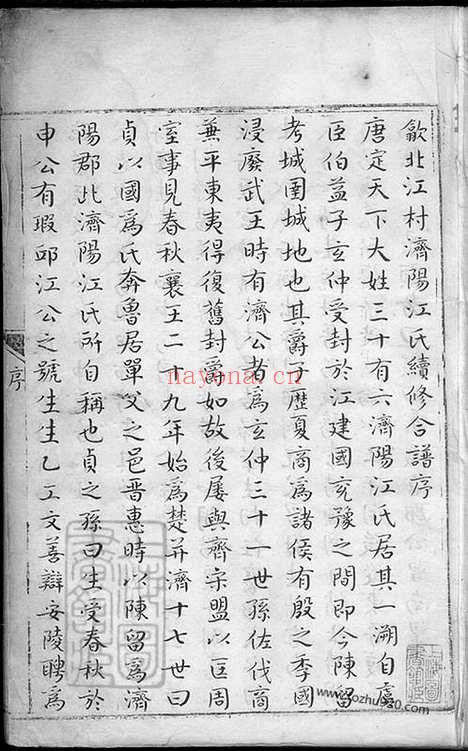 歙北江村濟陽江氏續修合譜序
唐定天下大姓三十有六濟陽江氏居其一溯自虞
臣伯益子玄仲受封於江建國兗豫之間即今陳留
考城圉城地也其爵子歷夏商為諸侯有殷之季國
浸廢武王時有濟公者為玄仲三十一世孫佐伐商
兼平東夷得復舊封爵如故後屢與齊宋盟以匡周
室事見春秋襄王二十九年始為楚并濟十七世曰
貞以國為氏奔魯居單父之邑晋惠時以陳留為濟
陽郡北濟陽江氏所自稱也貞之孫曰生受春秋於
申公有瑕邱江公之號生生乙工文善辯安陵聘為
序
nayona.cn